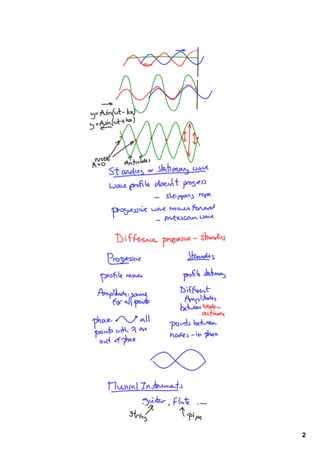 y=Asin(wt-kx)
y=Asin(wt+kx)
NODE
A=0
Antinodes
Standing or stationary wave
Wave profile doesn't progress
- skipping rope
progressive wave moves forward
- mexican wave
Difference progressive - standing
Progressive
profile moves
Amplitude: same
for all points
phase all
points with λ are
out of phase
Standing
profile stationary
Different
Amplitudes
between node -
antinode
points between
nodes - in phase
Musical Instruments
guitar, Flute
string
pipe
2